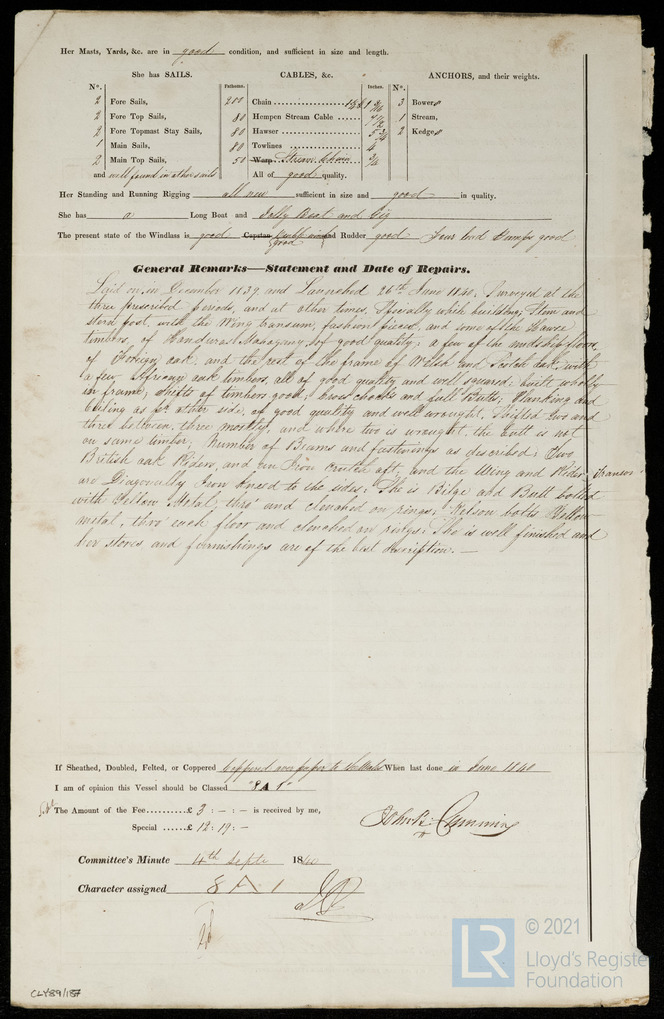 Her Masts, Yards, &c. are in good condition, and sufficient in size and length.
She has SAILS. CABLES, &c. ANCHORS, and their weights.
N°. Fathoms. Inches. N°.
2 Fore Sails, 200 Chain 3 Bowers
2 Fore Top Sails, 80 Hempen Stream Cable 7 1/2 1 Stream,
2 Fore Topmast Stay Sails, 80 Hawser 2 Kedges
1 Main Sails, 80 Towlines 4
2 Main Top Sails, 50 Warp Stream Chain 3/4
and well found in other sails All of good quality.
Her Standing and Running Rigging all new sufficient in size and good in quality.
She has a Long Boat and Jolly Boat and Gig
The present state of the Windlass is good Capstan good and Rudder good Pumps good
General Remarks—Statement and Date of Repairs.
Laid on in December 1839 and Launched 26th June 1840. Surveyed at the
three prescribed periods, and at other times, Specially while building; Stem and
stern post, with the Wing transum, fashion pieces, and some of the Hawse
timbers, of Honduras Mahogany, of good quality; a few of the midship floors
of Foreign oak, and the rest of the frame of Welsh and Scotch oak, with
a few African oak timbers, all of good quality and well squared; built wholly
in frame; shifts of timbers good; cross chocks and full Butts; Planking and
Ceiling as pr. other side, of good quality and well wrought, Shifted two and
three between, three mostly, and where two is wrought, the butt is not
on same timber; Number of Beams and fastenings as described; Two
British oak Riders, and an Iron Crutch aft; and the Wing and Rider Transom
are Diagonally Iron kneed to the sides; She is Bilge and Butt bolted
with Yellow Metal, thro' and clenched on rings; Kelson bolts Yellow
metal, thro' each floor and clenched on rings: She is well finished and
her stores and furnishings are of the best description.—
If Sheathed, Doubled, Felted, or Coppered Coppered over paper to the Wales When last done in June 1840
I am of opinion this Vessel should be Classed "8 A 1"
The Amount of the Fee £ 3 : - : - is received by me,
Special £ 12 : 19 : - John B: Cumming
Committee's Minute 4th Septr 1840
Character assigned 8 A 1
© 2021
LR Lloyd's Register
Foundation
CLY89/187